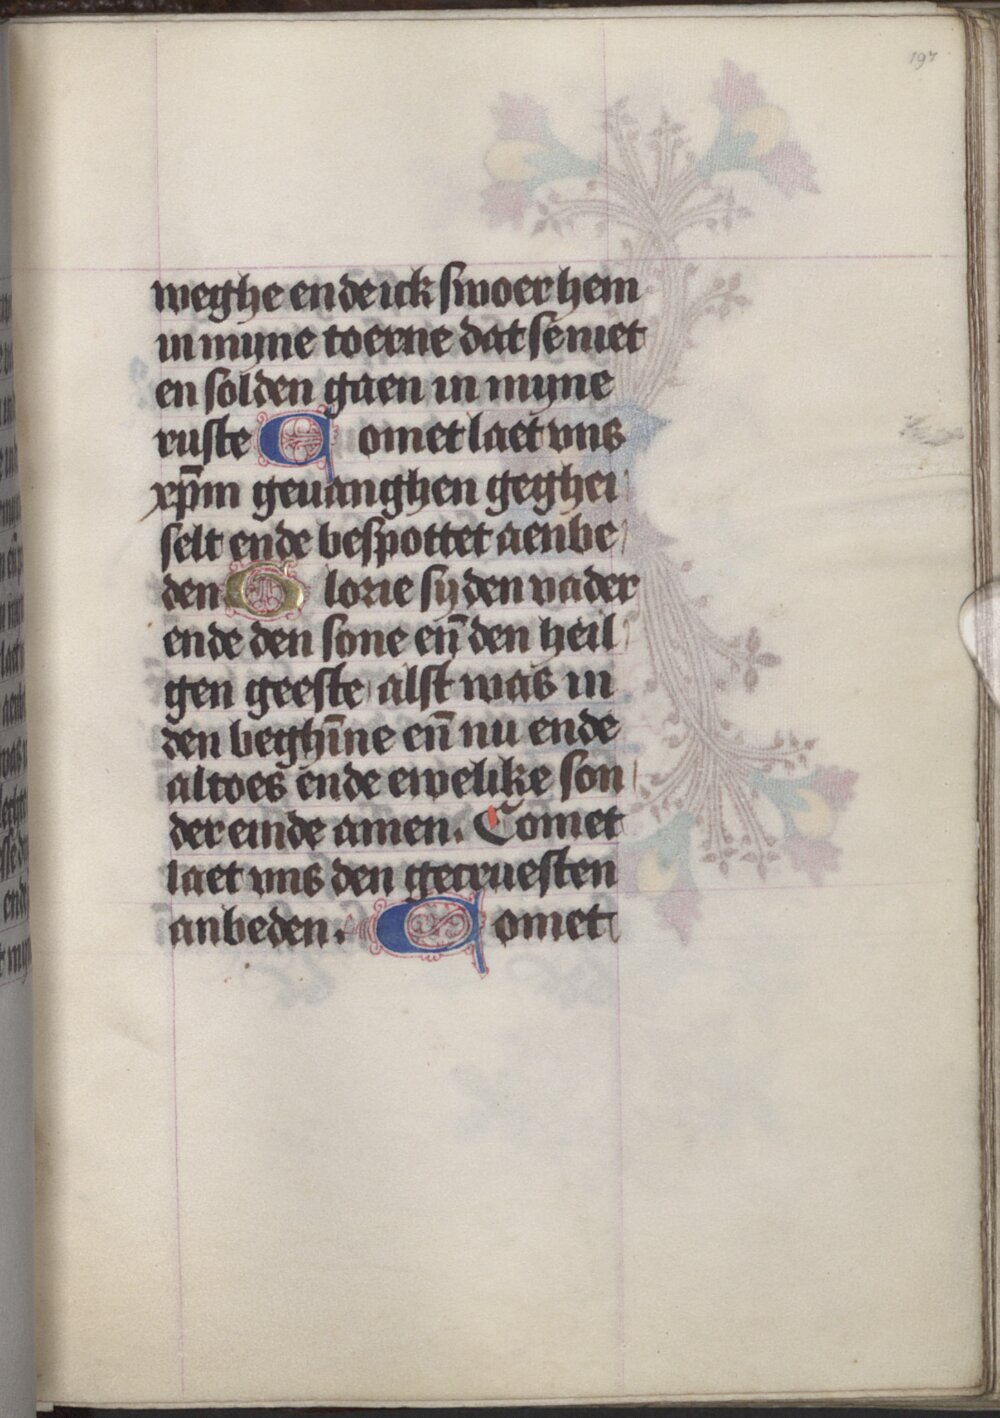 197
weghe ende ick swoer hem
in myne toerne dat se niet
en solden gaen in myne
ruste Comet laet vns
xp̄m geuanghen geghei
selt ende bespottet aenbe
den Glorie sy den vader
ende den sone en̄ den heil
gen geeste alst was in
den begh̄ine en̄ nu ende
altoes ende ewelike son
der einde amen. Comet
laet vns den gecruesten
anbeden. Comet